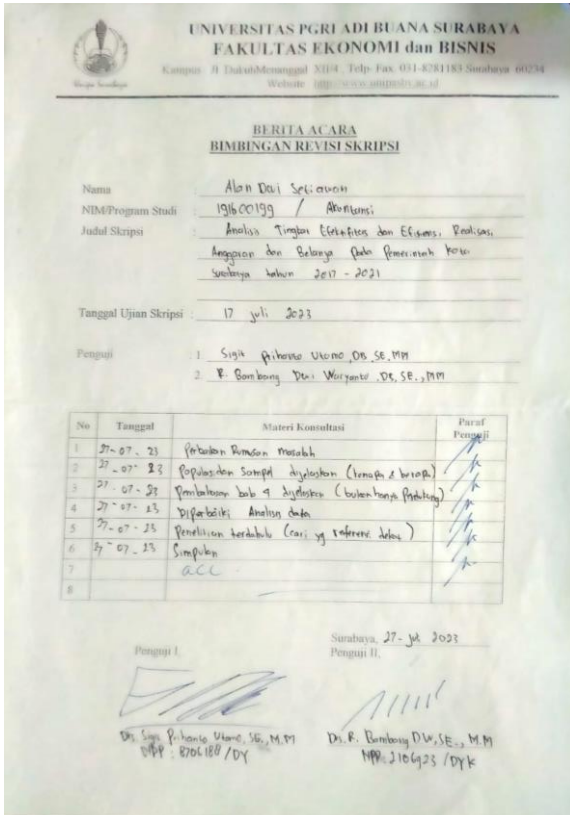 UNIVERSITAS PGRI ADI BUANA SURABAYA
FAKULTAS EKONOMI dan BISNIS
Kampus Jl. DukuhMenanggal XII/4, Telp. Fax. 031-8281183 Surabaya 60234
Website
BERITA ACARA
BIMBINGAN REVISI SKRIPSI
Nama : Alan Dwi Setiawan
NIM/Program Studi : 191600199 / Akuntansi
Judul Skripsi : Analisis Tingkat Efektifitas dan Efisiensi, Realisasi,
Anggaran dan Belanja Pada Pemerintah Kota
Surabaya tahun 2017 - 2021
Tanggal Ujian Skripsi : 17 juli 2023
Penguji : 1. Sigit Prihanto Utomo, DR, SE, MM
2. R. Bambang Dwi Waryanto, DR, SE., MM
No Tanggal Materi Konsultasi Paraf Penguji
1 27-07-23 Perbaikan Rumusan masalah
2 27-07-23 Populasi dan Sampel dijelaskan
3 27-07-23 Pembahasan bab 4 dijelaskan
4 27-07-23 Diperbaiki Analisis data
5 27-07-23 Penelitian terdahulu (cari yg
6 27-07-23 Simpulan
7 acc
8
Surabaya, 27 - jul 2023
Penguji I, Penguji II,
Drs. Sigit Prihanto Utomo, SE, M.M Drs. R. Bambang DW, SE., M.M
NPP : 8706188 /DY NPP. 2106923 /DYK